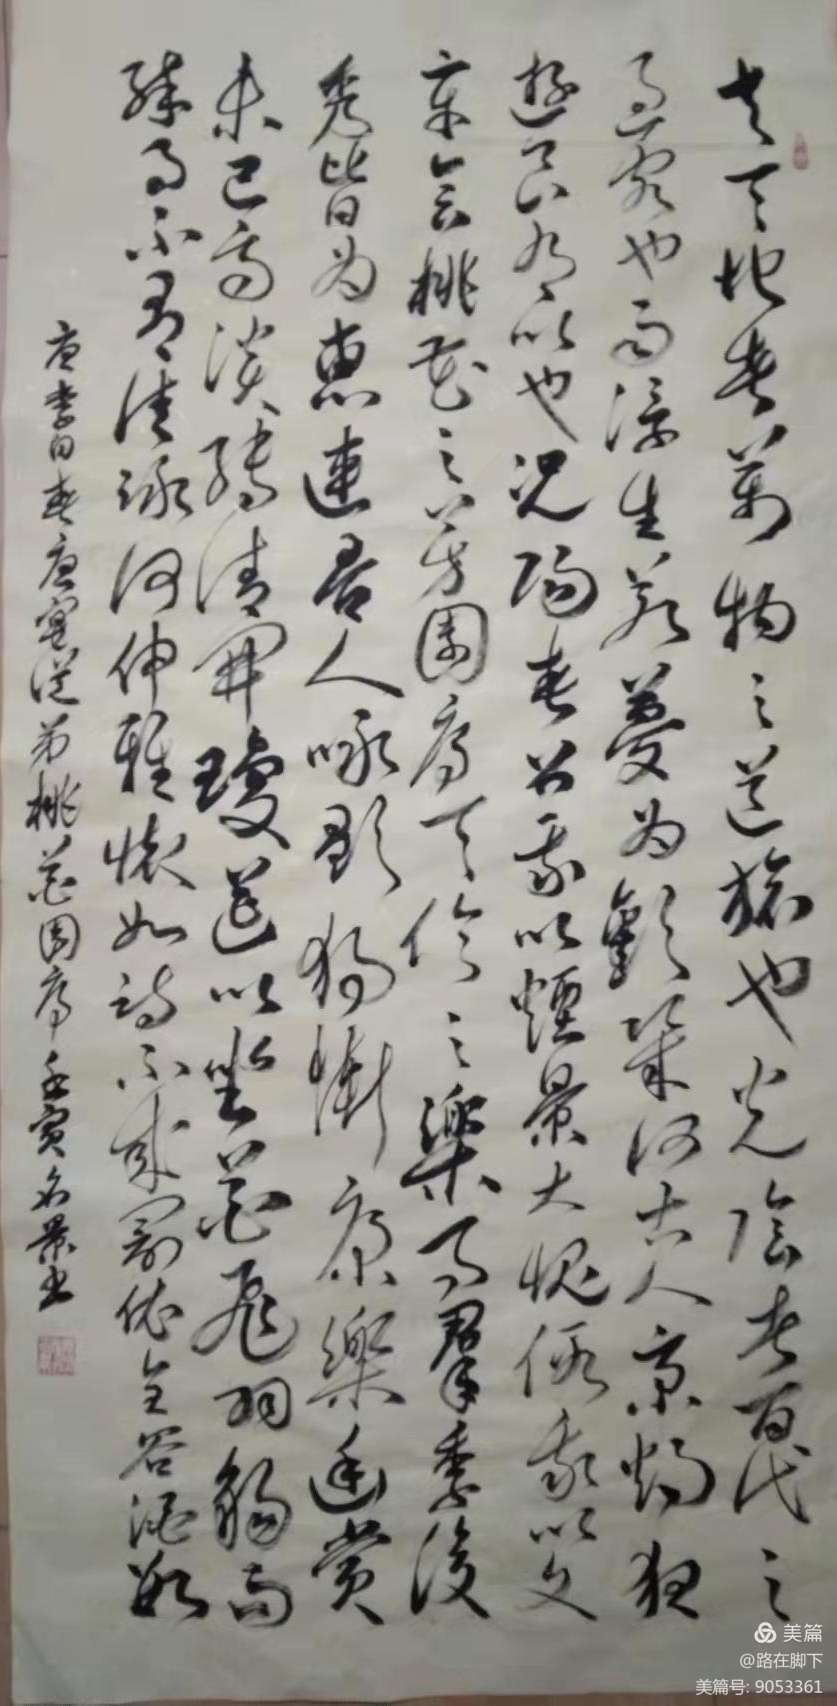 夫天地者萬物之逆旅也光陰者百代之
過客也而浮生若夢為歡幾何古人秉燭夜
遊良有以也況陽春召我以煙景大塊假我以文
章會桃花之芳園序天倫之樂事群季俊
秀皆為惠連吾人詠歌獨慚康樂幽賞
未已高談轉清開瓊筵以坐花飛羽觴而
醉月不有佳詠何伸雅懷如詩不成罰依金谷酒數
唐李白春夜宴從弟桃花園序壬寅名景書
美篇
@路在脚下
美篇号: 9053361